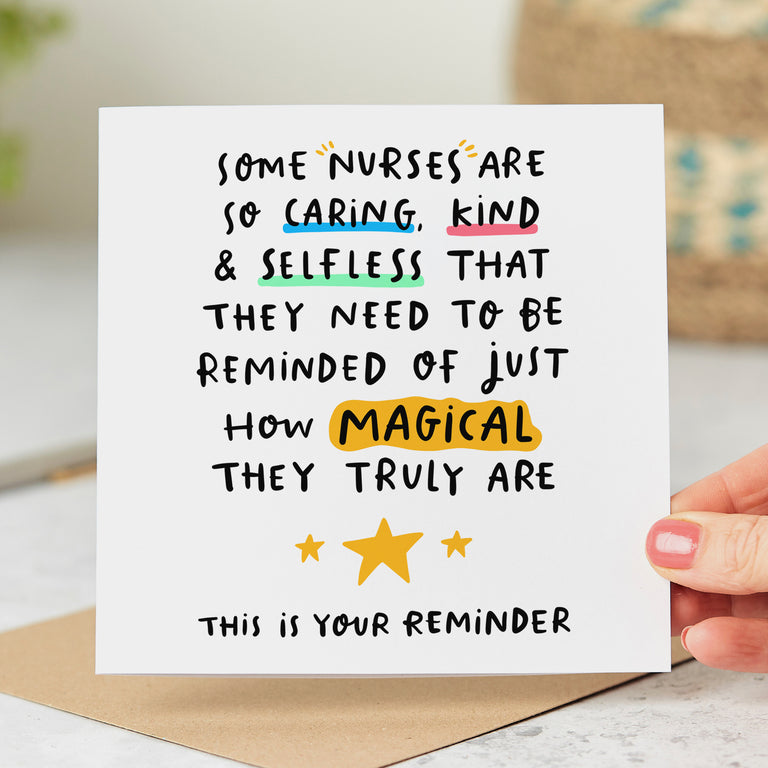 SOME NURSES ARE
SO CARING, KIND
& SELFLESS THAT
THEY NEED TO BE
REMINDED OF JUST
HOW MAGICAL
THEY TRULY ARE
THIS IS YOUR REMINDER